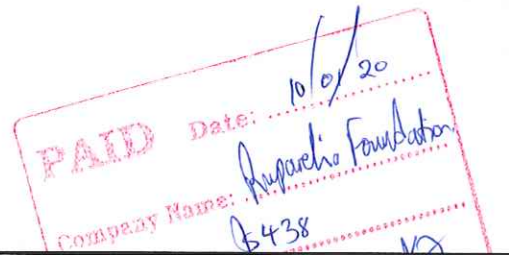 PAID Date: 10/01/20
Company Name: Ruparelia Foundation